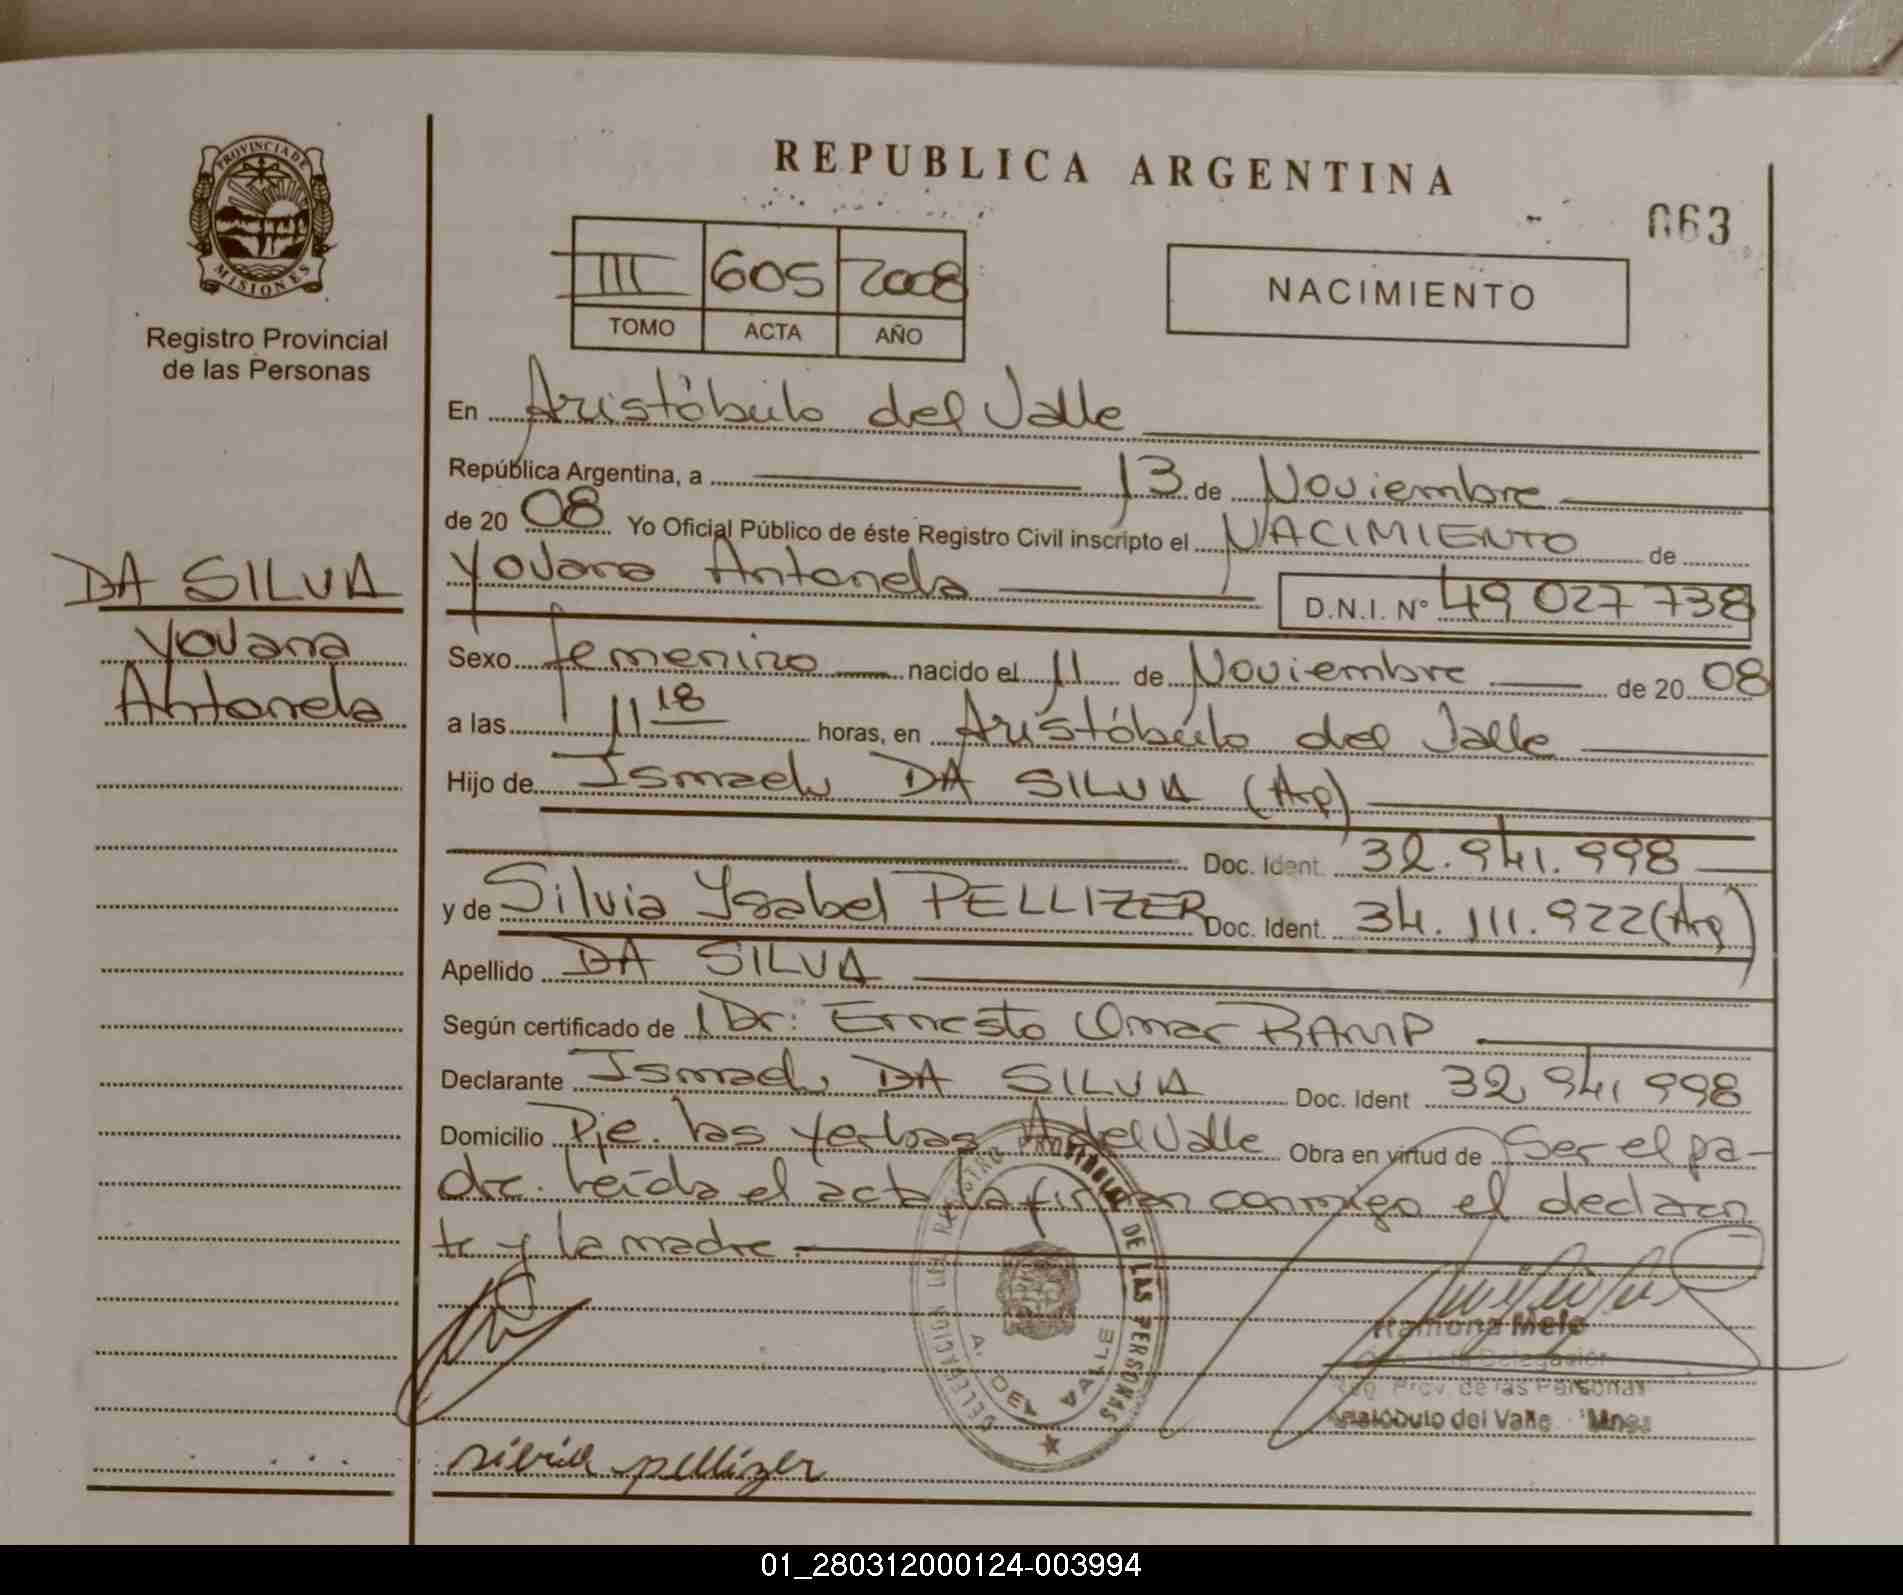 REPUBLICA ARGENTINA
063
PROVINCIA DE
MISIONES
Registro Provincial
de las Personas
III 605 2008
TOMO ACTA AÑO
NACIMIENTO
En Aristóbulo del Valle
República Argentina, a 13 de Noviembre
de 20 08 Yo Oficial Público de éste Registro Civil inscripto el NACIMIENTO de
DA SILVA
Yovana
Antonela
Yovana Antonela D.N.I. Nº 49 027 738
Sexo femenino nacido el 11 de Noviembre de 20 08
a las 11 18 horas, en Aristóbulo del Valle
Hijo de Ismael DA SILVA (Arg)
Doc. Ident. 32.941.998
y de Silvia Ysabel PELLIZER Doc. Ident. 34.111.922 (Arg)
Apellido DA SILVA
Según certificado de Dr: Ernesto Omar RAMP
Declarante Ismael DA SILVA Doc. Ident 32 941 998
Domicilio Pje. las Yerbas A del Valle Obra en virtud de Ser el pa-
dre. Leída el acta la firman conmigo el declaran
te y la madre.
DE LAS PERSONAS
A. DEL VALLE
Ramona Melo
Delegación
Reg. Prov. de las Personas
Aristóbulo del Valle Mnes
silvia pellizer
01_280312000124-003994